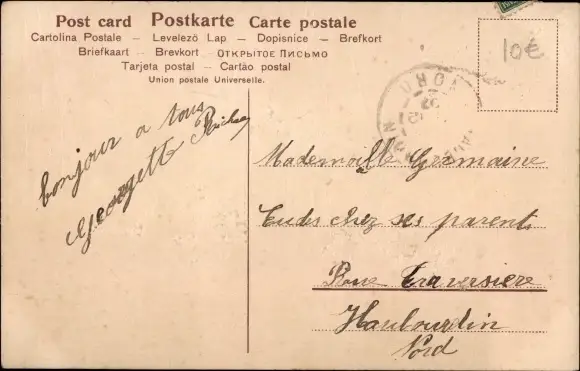 Post card Postkarte Carte postale
Cartolina Postale – Levelező Lap – Dopisnice – Brefkort
Briefkaart – Brevkort – Открытое Письмо
Tarjeta postal – Cartão postal
Union postale Universelle.
10€
bonjour a tous
Georgett
Mademoiselle Germaine
Eudes chez ses parents
Rue Traversiere
Haubourdin
Nord